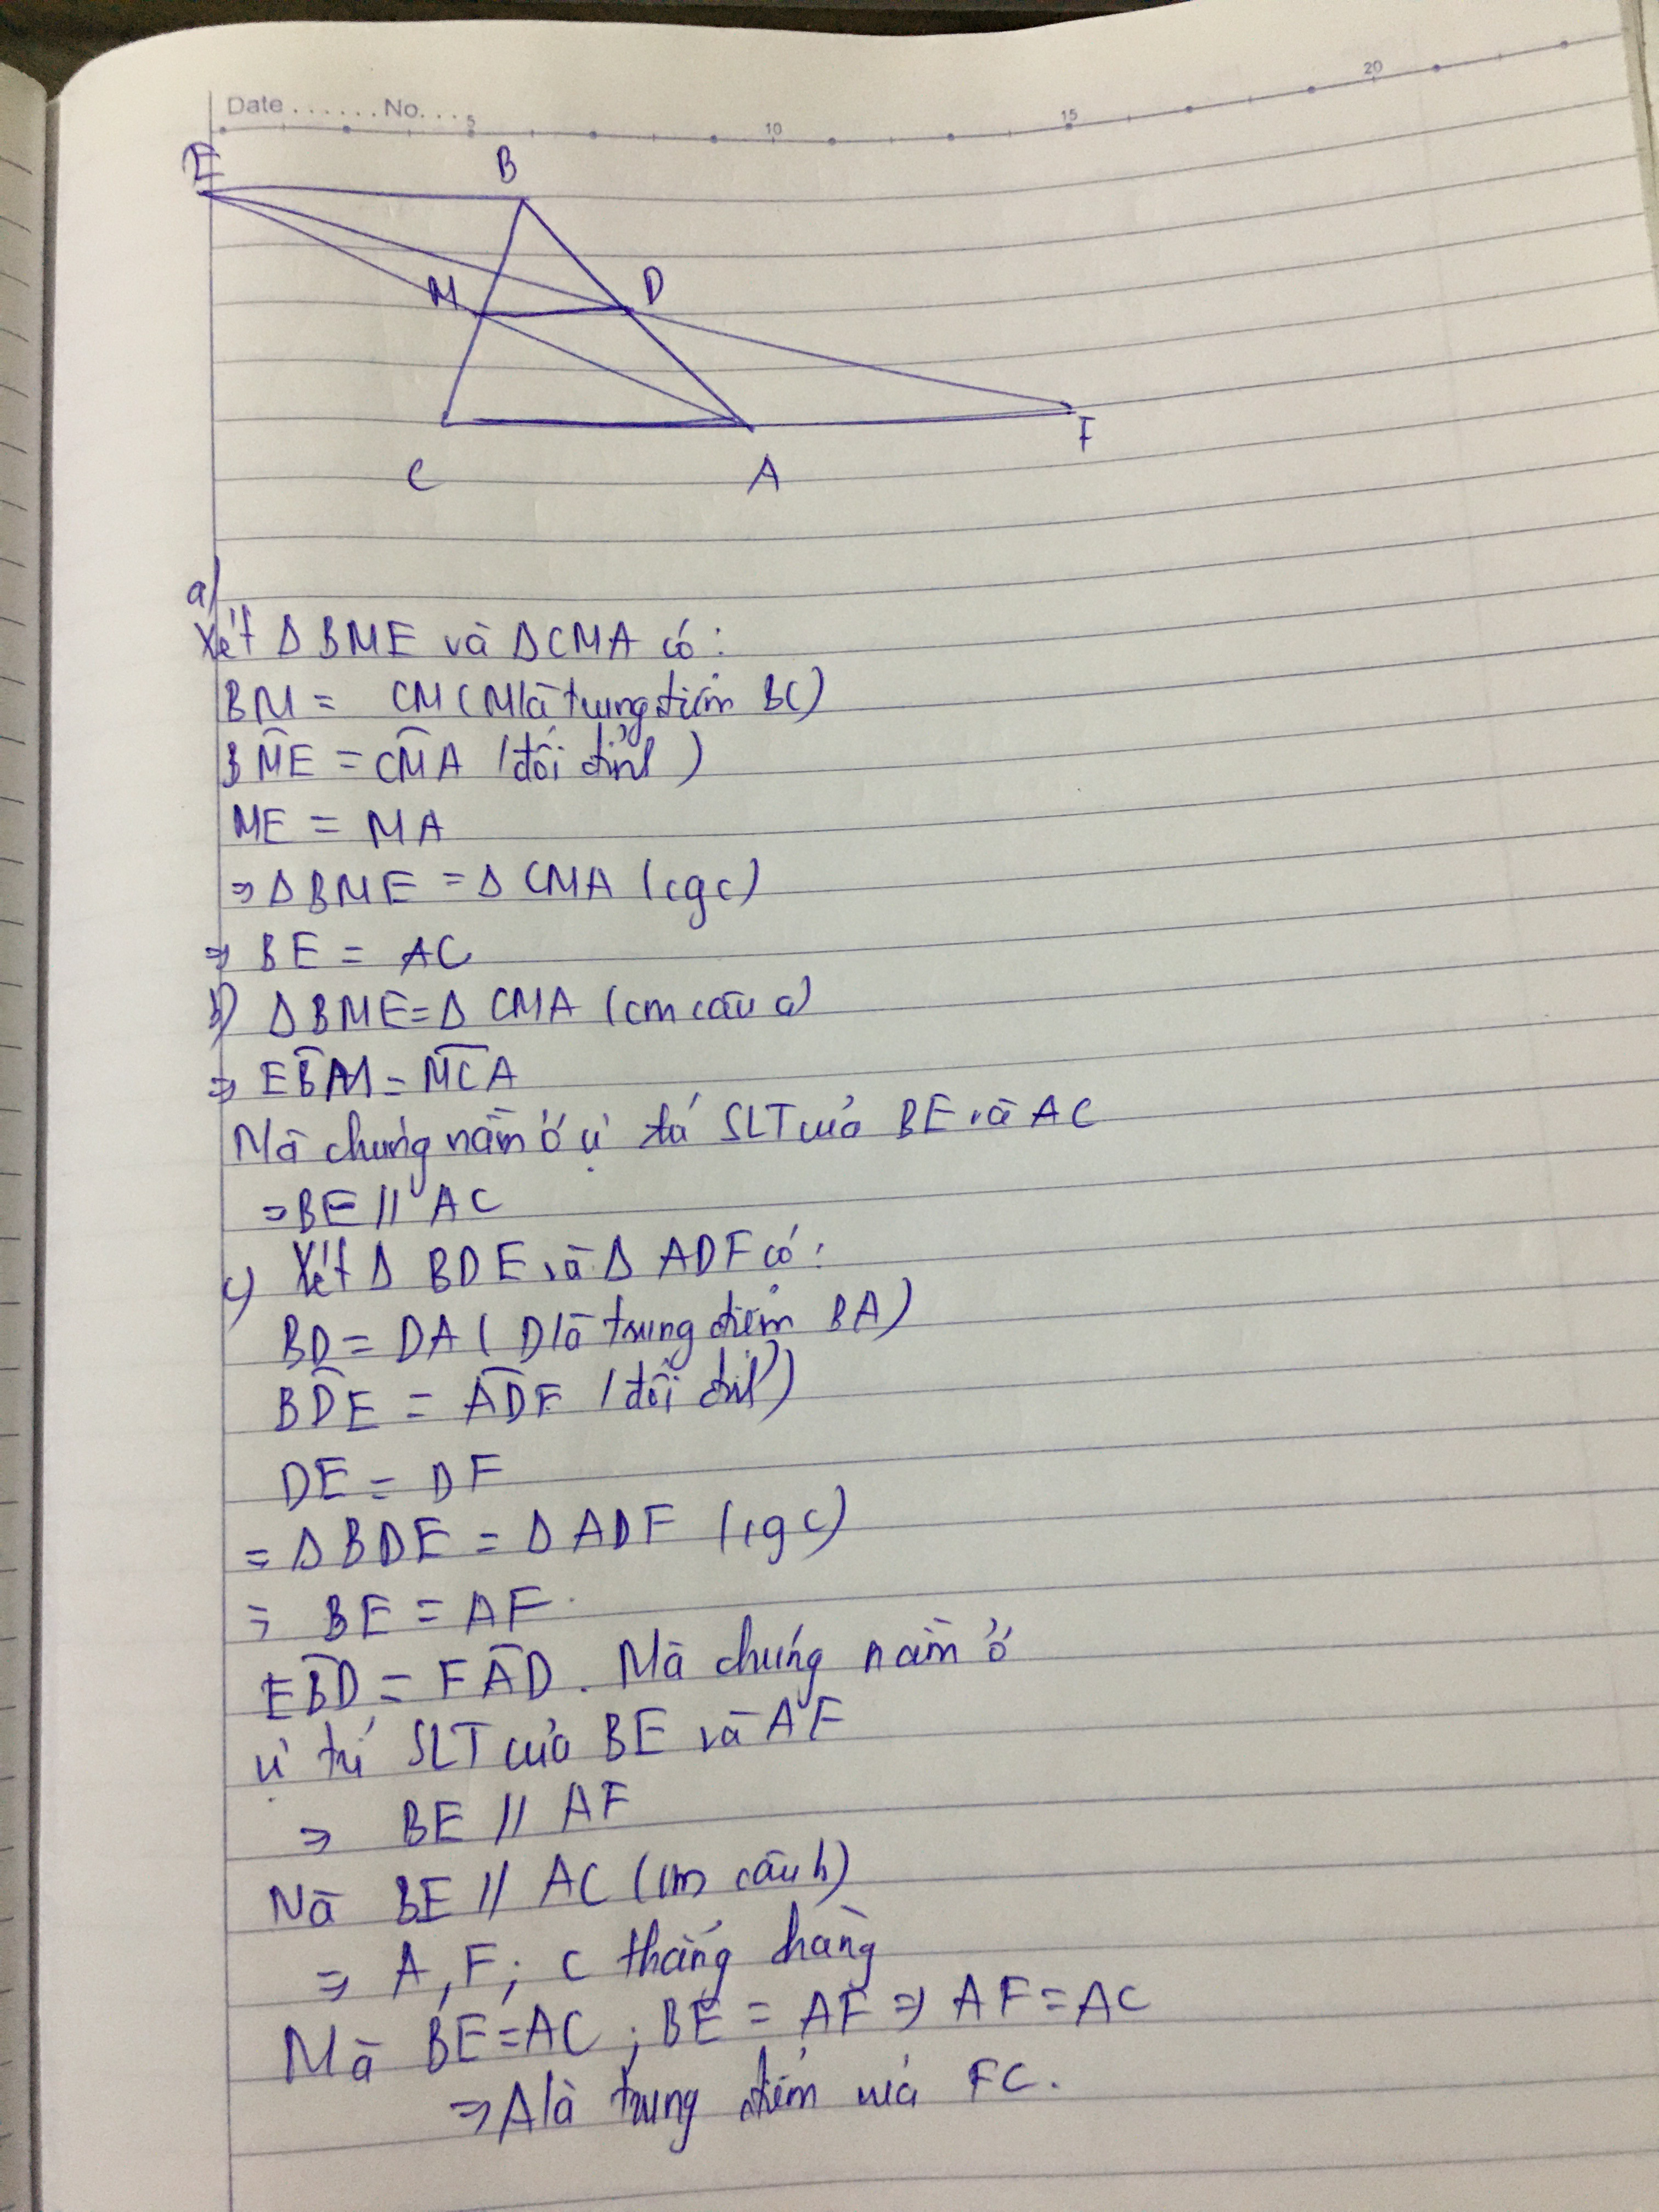 Date ...... No....
5
10
15
20
E
B
M
D
C
A
F
a)
Xét Δ BME và ΔCMA có:
BM = CM (M là trung điểm BC)
BM̂E = CM̂A (đối đỉnh)
ME = MA
⇒ Δ BME = Δ CMA (cgc)
⇒ BE = AC
b) Δ BME = Δ CMA (cm câu a)
⇒ EB̂M = MĈA
Mà chúng nằm ở vị trí SLT của BE và AC
⇒ BE // AC
c) Xét Δ BDE và Δ ADF có:
BD = DA ( D là trung điểm BA)
BD̂E = AD̂F (đối đỉnh)
DE = DF
= Δ BDE = Δ ADF (cgc)
⇒ BE = AF
EB̂D = FÂD. Mà chúng nằm ở
vị trí SLT của BE và AF
⇒ BE // AF
Mà BE // AC (cm câu b)
⇒ A, F; C thẳng hàng
Mà BE = AC ; BE = AF ⇒ AF = AC
⇒ A là trung điểm của FC.